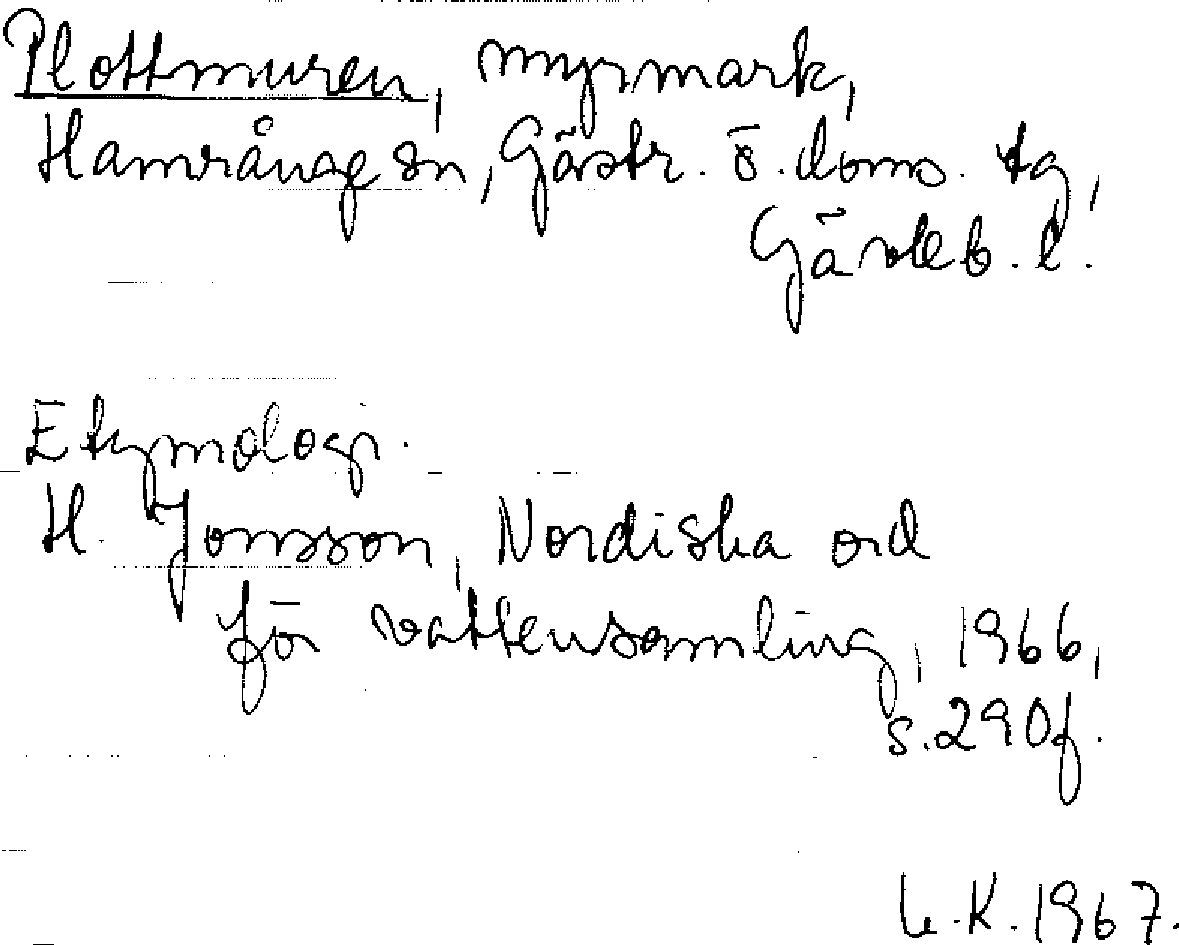 Plottmuren, myrmark,
Hamrånge sn, Gästr. ö. doms. tg,
Gävleb. l.
Etymologi.
H. Jonsson, Nordiska ord
för vattensamling, 1966,
s. 290f.
K. 1967.